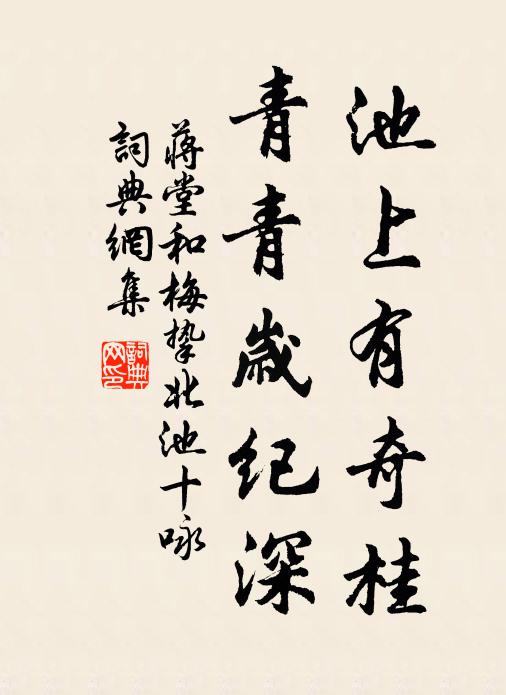 池上有奇桂
青青歲紀深
蔣堂和梅摯北池十咏
詞典網集
詞典網印